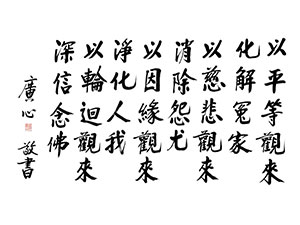 以平等觀來
化解冤家
以慈悲觀來
消除怨尤
以因緣觀來
淨化人我
以輪迴觀來
深信念佛
廣心敬書